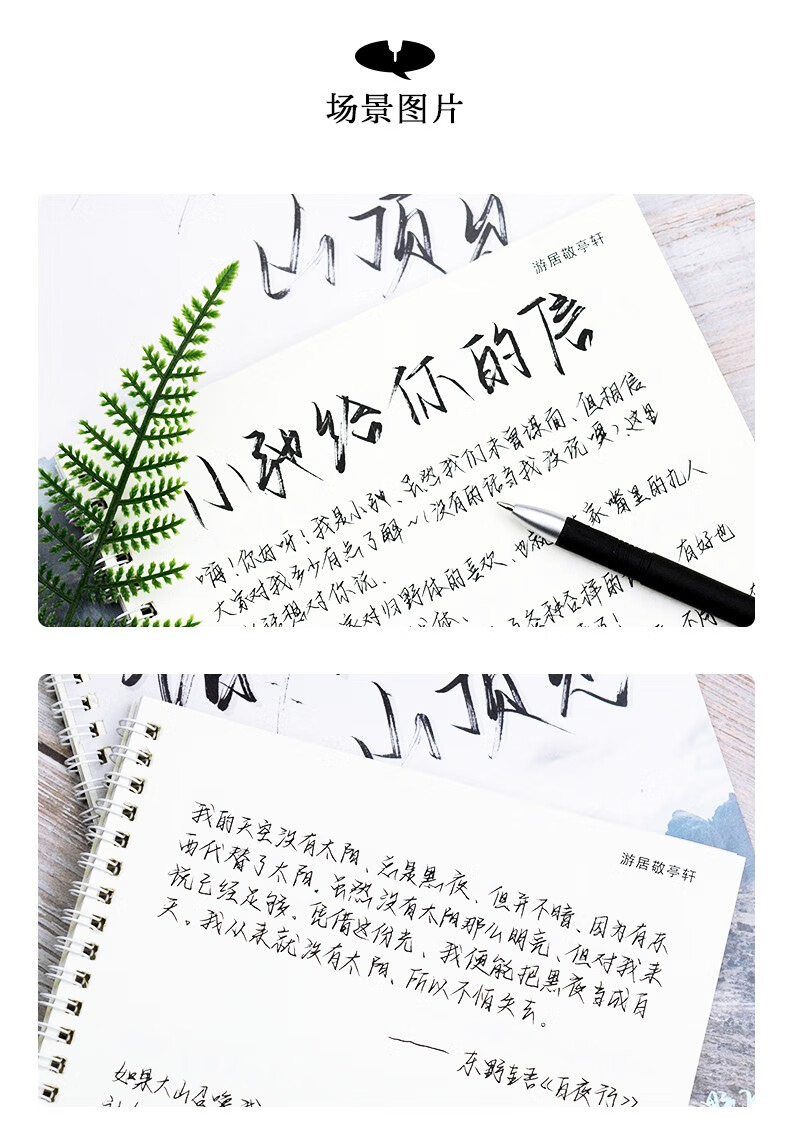 场景图片
山顶见
游居敬亭轩
小驰给你的信
嗨！你好呀！我是小驰、虽然我们未曾谋面、但相信
大家对我多少有点了解~(没有的话当我没说 耍)、这里
想对你说、
对归野体的喜欢、也就 家嘴里的丸人
有好也
山顶见
游居敬亭轩
我的天空没有太阳、总是黑夜、但并不暗、因为有东
西代替了太阳。虽然没有太阳那么明亮、但对我来
说已经足够。凭借这份光、我便能把黑夜当成白
天。我从来就没有太阳、所以不怕失去。
——东野圭吾《白夜行》
如果大山召唤我